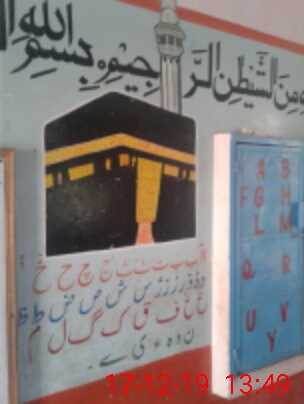 ہ من الشیطن الرجیم ہ بسم اللہ
آ ا ب پ ت ٹ ث ج چ ح خ
د ڈ ذ ر ڑ ز ژ س ش ص ض ط ظ
ع غ ف ق ک گ ل م
ن و ہ ء ی ے ۔
A B
F G H
L M
Q R
U V
Y
17-12-19 13:49